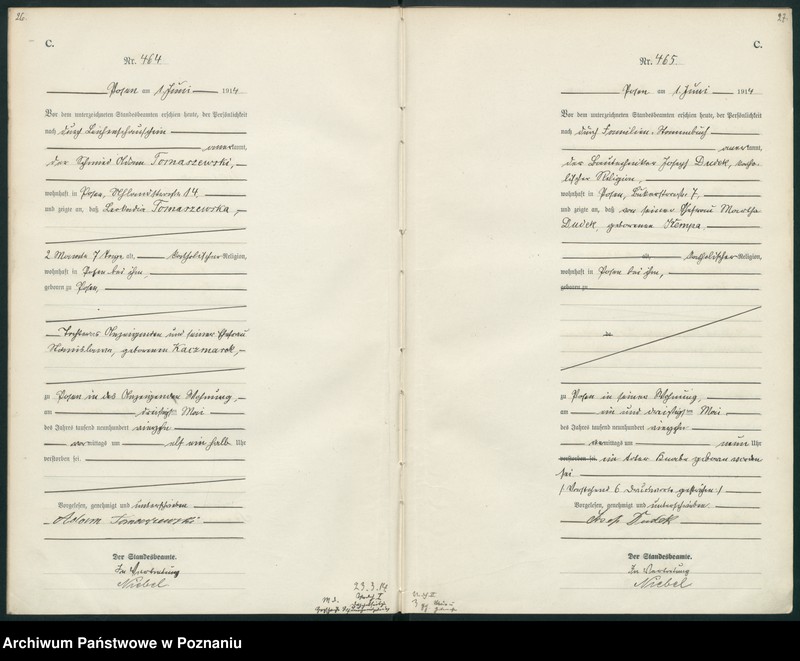 26.
C.
Nr. 464
Posen am 1 Juni 1914
Vor dem unterzeichneten Standesbeamten erschien heute, der Persönlichkeit
nach durch Leichenschauschein
anerkannt,
der Schmied Adam Tomaszewski,
wohnhaft in Posen, 14.
und zeigte an, daß Leokadia Tomaszewska,
2 Monate 7 Tage alt, katholischer Religion,
wohnhaft in Posen bei ihm,
geboren zu Posen,
Tochter des Anzeigenden und seiner Ehefrau
Stanislawa, geborenen Kaczmarek,
zu Posen in des Anzeigenden Wohnung,
am dreißigsten Mai
des Jahres tausend neunhundert vierzehn
vormittags um elf ein halb Uhr
verstorben sei.
Vorgelesen, genehmigt und unterschrieben
Adam Tomaszewski
Der Standesbeamte.
In Vertretung
Niebel
27.
C.
Nr. 465
Posen am 1 Juni 1914
Vor dem unterzeichneten Standesbeamten erschien heute, der Persönlichkeit
nach durch Familien-Stammbuch
anerkannt,
der Bautechniker Joseph Dudek, katho-
lischer Religion,
wohnhaft in Posen, 7,
und zeigte an, daß von seiner Ehefrau Martha
Dudek, geborenen Kempa,
alt, katholischer Religion,
wohnhaft in Posen bei ihm,
geboren zu
de
zu Posen in seiner Wohnung,
am ein und dreißigsten Mai
des Jahres tausend neunhundert vierzehn
mittags um neun Uhr
verstorben sei. ein toter Knabe geboren worden
sei
(Vorstehend 6 Druckworte gestrichen)
Vorgelesen, genehmigt und unterschrieben
Josef Dudek
Der Standesbeamte.
In Vertretung
Niebel
Archiwum Państwowe w Poznaniu